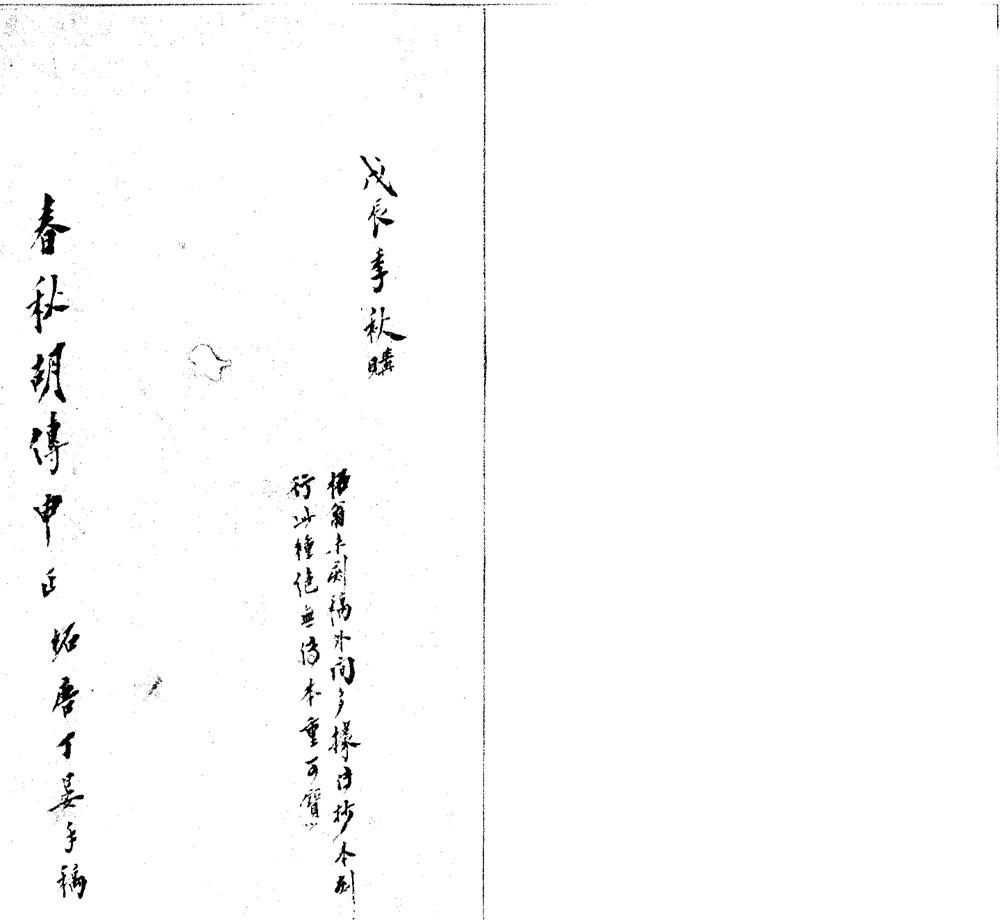 戊辰季秋購
柘翁未刻稿外間多據傳抄本刻
行此種絕無傳本重可寶
春秋胡傳申正 柘唐丁晏手稿